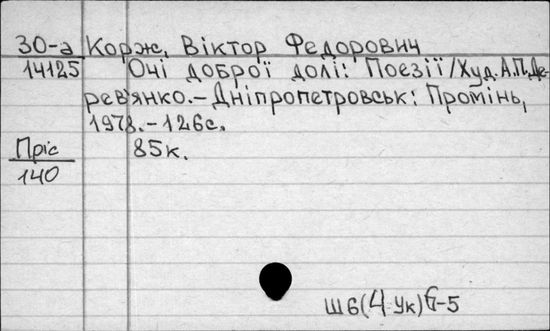 30-а Корж, Віктор Федорович
14125 Очі доброї долі: Поезії/Худ. А.П.Де-
рев'янко.-Дніпропетровськ: Промінь,
1978.-126с.
Пріс 85к.
140
Ш6(4 Ук)6-5